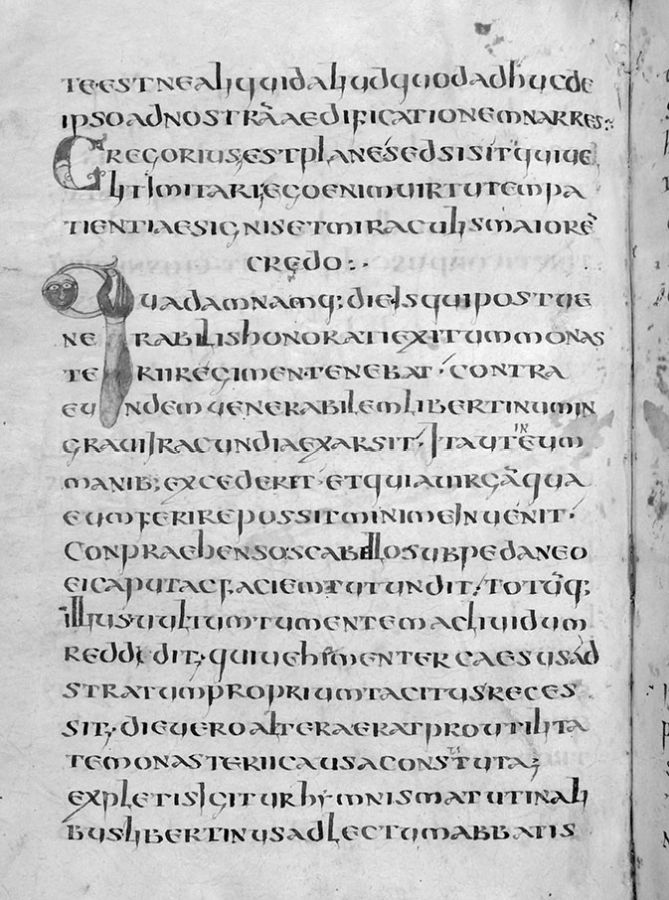 te est ne aliquid aliud quod adhuc de
ipso ad nostrā aedificationem narres:;
Gregorius; est plane sed si sit qui ue
lit imitari; ego enim uirtutem pa
tientiae signis et miraculis maiorē
credo:.
Quadam namq; die is qui post ue
nerabilis honorati exitum monas
terii regimen tenebat. contra
eundem uenerabilem libertinum in
graui iracundia exarsit. Ita ut eum in
manib; excederet. et quia uirgā qua
eum ferire possit minime inuenit.
Conpraehenso scabello subpedaneo
ei caput ac faciem tutundit; totūq;
illius uultum tumentem ac liuidum
reddidit; qui uehimenter caesus ad
stratum proprium tacitus reces
sit; die uero altera erat pro utilita
te monasterii causa constituta;
expletis igitur hymnis matutinali
bus libertinus ad lectum abbatis